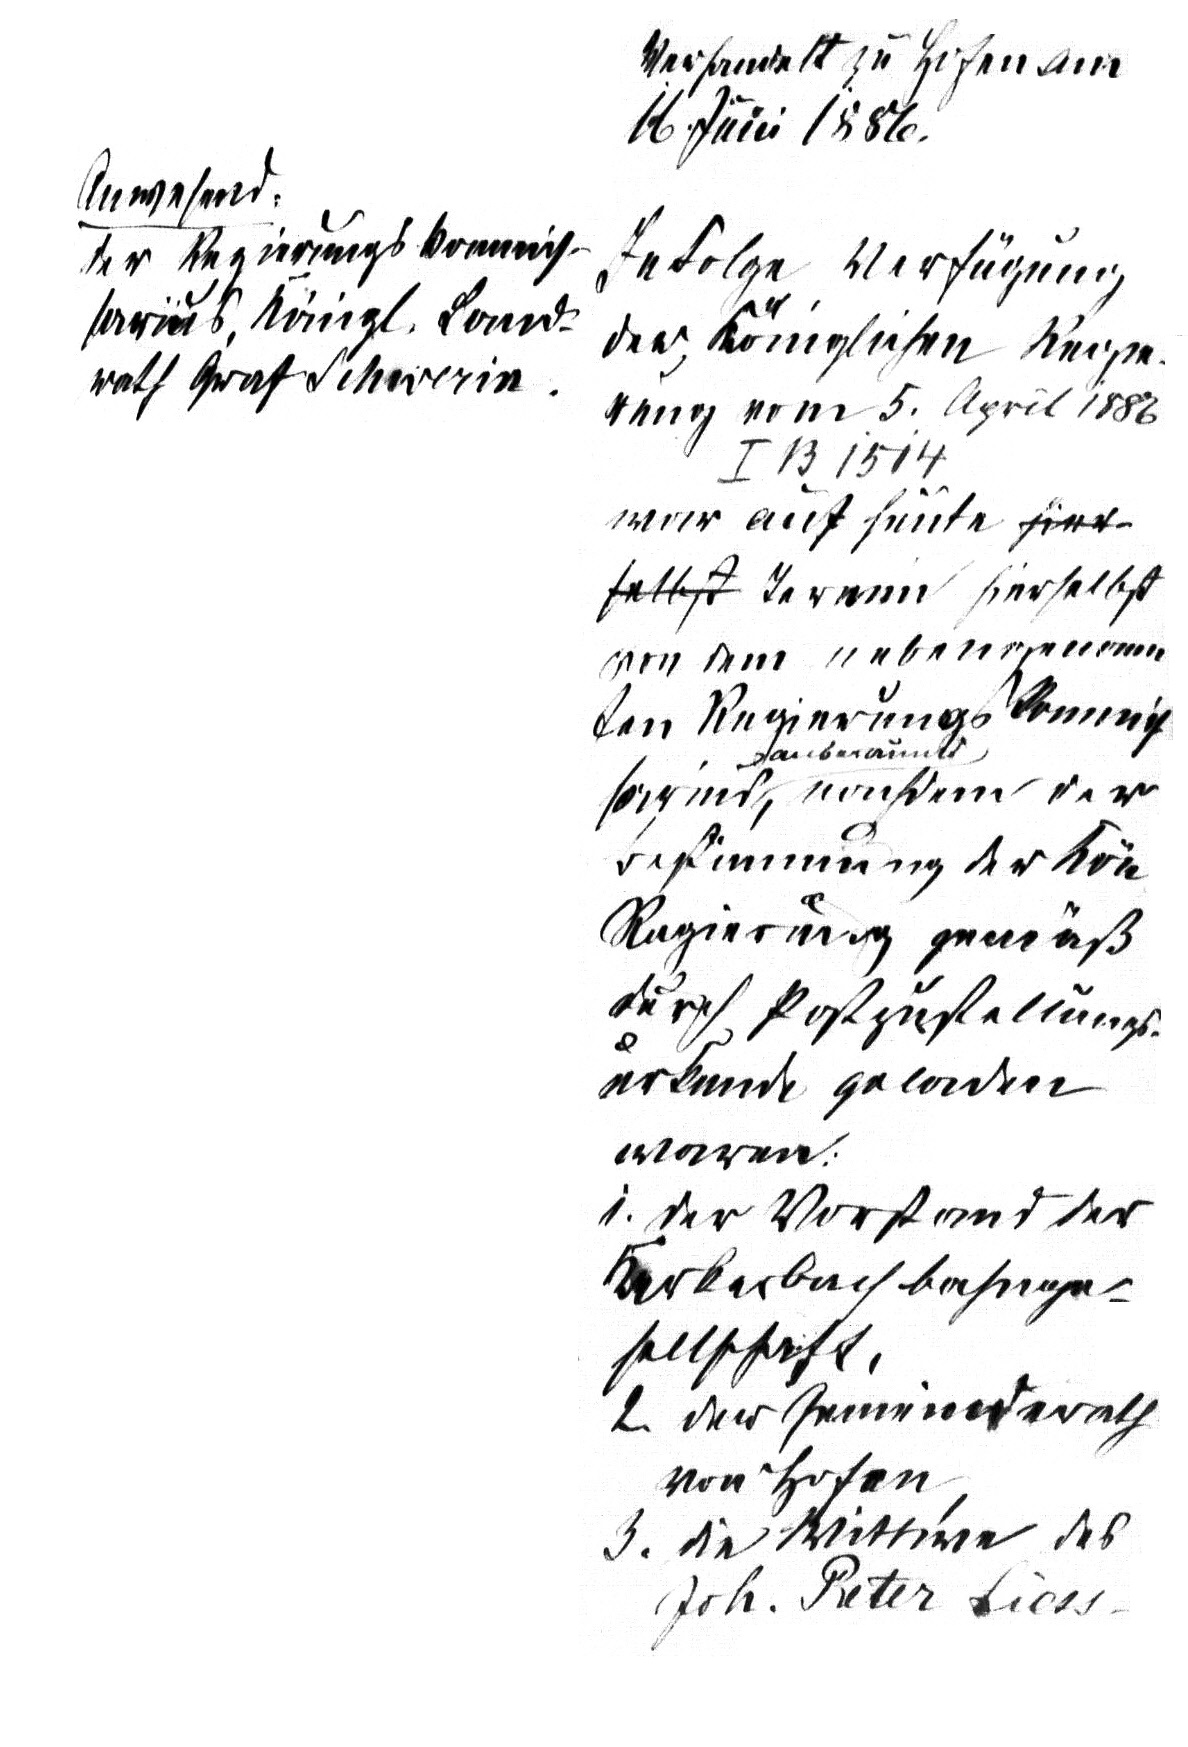 Verhandelt zu Hofen am
16. Juni 1886.
Anwesend:
der Regierungskommis-
sarius, Königl. Land-
rath Graf Schwerin.
In Folge Verfügung
der Königlichen Regie-
rung vom 5. April 1886
I B 1514
war auf heute hier-
selbst Termin hierselbst
von dem nebengenann
ten Regierungs Kommis
anberaumt
sarius, nachdem der
Bestimmung der Kön
Regierung gemäß
durch Postzustellungs-
urkunde geladen
waren:
1. der Vorstand der
Kerkerbachbahnge-
sellschaft,
2. der Gemeinderath
von Hofen,
3. die Wittwe des
Joh. Peter